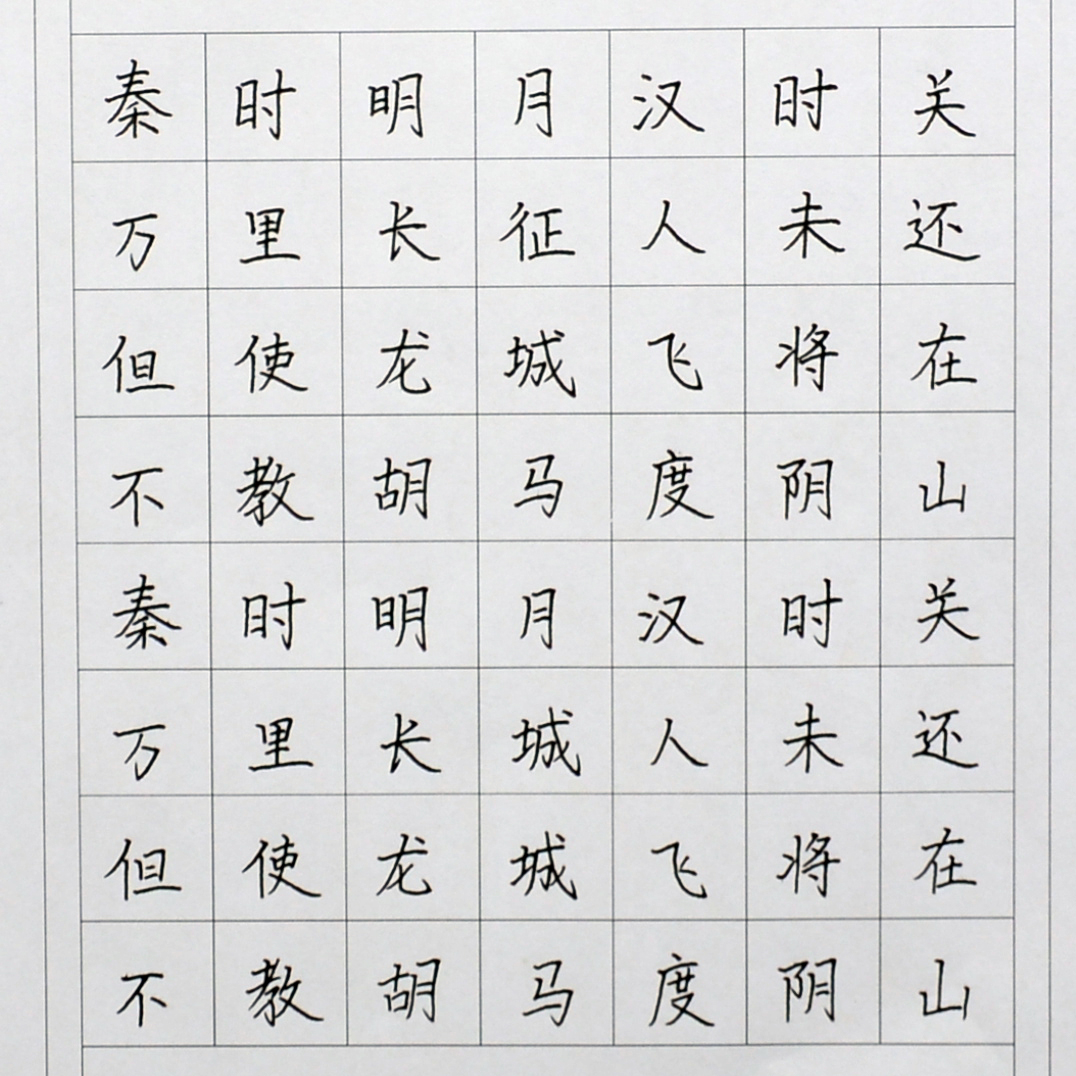 秦时明月汉时关
万里长征人未还
但使龙城飞将在
不教胡马度阴山
秦时明月汉时关
万里长城人未还
但使龙城飞将在
不教胡马度阴山